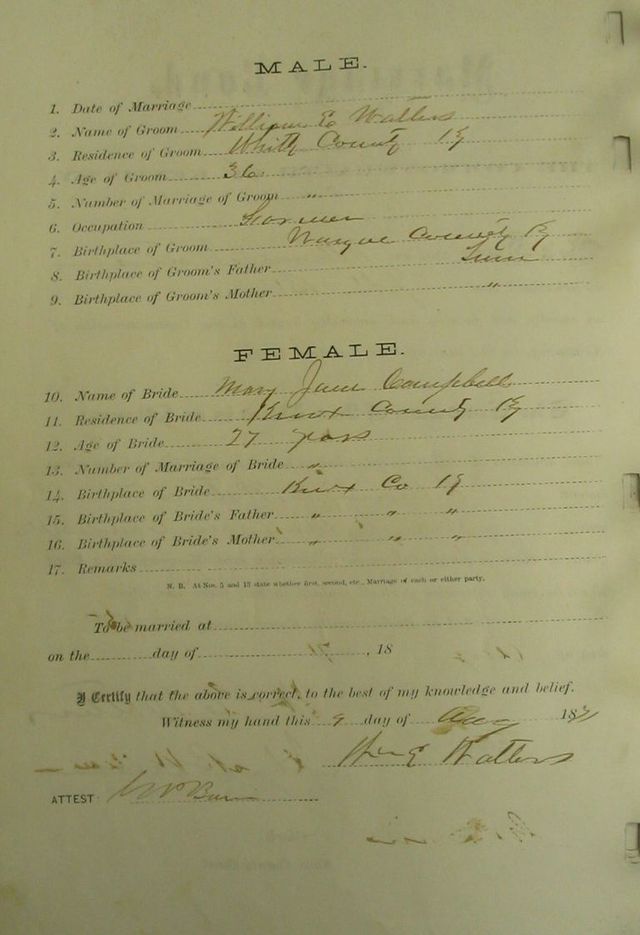 MALE.
1. Date of Marriage
2. Name of Groom William E Watters
3. Residence of Groom Whitly County Ky
4. Age of Groom 36
5. Number of Marriage of Groom "
6. Occupation Farmer
7. Birthplace of Groom Wayne County Ky
8. Birthplace of Groom's Father
9. Birthplace of Groom's Mother "
FEMALE.
10. Name of Bride Mary Jane Campbell
11. Residence of Bride Knox County Ky
12. Age of Bride 27 years
13. Number of Marriage of Bride "
14. Birthplace of Bride Knox Co Ky
15. Birthplace of Bride's Father " " "
16. Birthplace of Bride's Mother " " "
17. Remarks
N. B. At Nos. 5 and 13 state whether first, second, etc., Marriage of each or either party.
To be married at
on the day of , 18
I Certify that the above is correct, to the best of my knowledge and belief.
Witness my hand this 9 day of Aug 187
Wm E Watters
ATTEST: